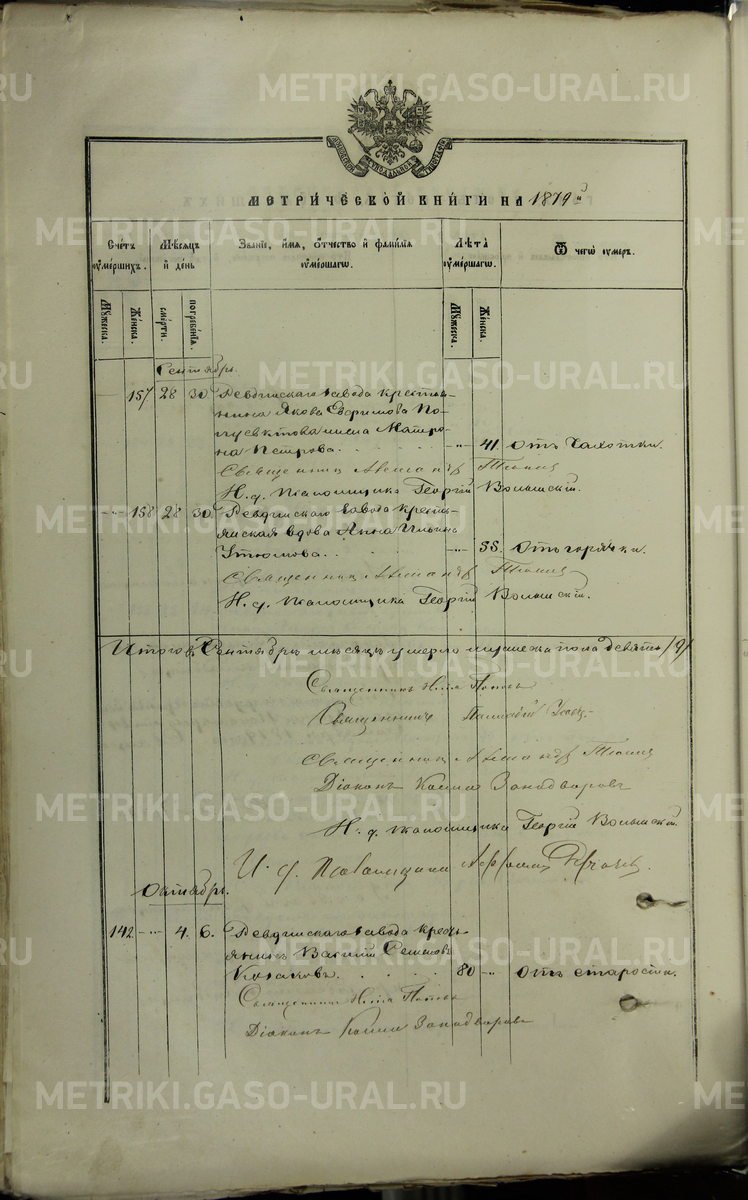 METRIKI.GASO-URAL.RU
МЕТРИ́ЧЕСКОЙ КНИ́ГИ НА 1879 й
Сче́тъ оуме́ршихъ.
Мѣ́сяцъ и де́нь
Зва́нїе, и́мя, о́тчество и фами́лїя оуме́ршагѡ.
Лѣ́та оуме́ршагѡ.
Ѿ чегѡ̀ оу́меръ.
Му́жеска.
Же́нска.
сме́рти.
погребе́нїя.
Му́жеска.
Же́нска.
Сентябрь.
157 28 30 Ревдинскаго завода крестья-
нина Якова Ефимова По-
луектова жена Матро-
на Петрова. 41. Отъ чахотки.
Священникъ Александръ
И. д. псаломщика Георгій Волынскій.
158 28 30 Ревдинскаго завода кресть-
янская вдова Анна Ильина
Утюмова. 55. Отъ горячки.
Священникъ Александръ
И. д. псаломщика Георгій Волынскій.
Итого въ Сентябрѣ мѣсяцѣ умерло мужеска пола девять /9/
Священникъ Илія Поповъ
Священникъ
Священникъ Александръ
Діаконъ Косма Западваровъ
И. д. псаломщика Георгій Волынскій.
И. д. Псаломщика
Октябрь.
142 4. 6. Ревдинскаго завода кресть-
янинъ Василій Семеновъ
Козаковъ. 80 Отъ старости.
Священникъ Илія Поповъ
Діаконъ Косма Западваровъ